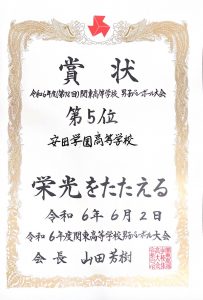 賞状
令和6年度(第78回)関東高等学校 男子バレーボール大会
第5位
安田学園高等学校
栄光をたたえる
令和 6年 6月 2日
令和6年度関東高等学校男子バレーボール大会
会長 山田芳樹